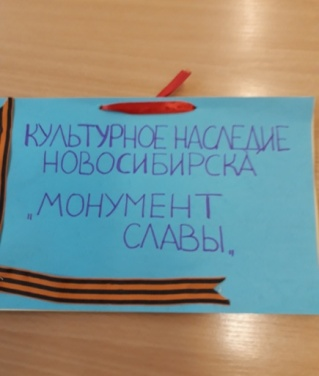 КУЛЬТУРНОЕ НАСЛЕДИЕ
НОВОСИБИРСКА
„МОНУМЕНТ
СЛАВЫ„